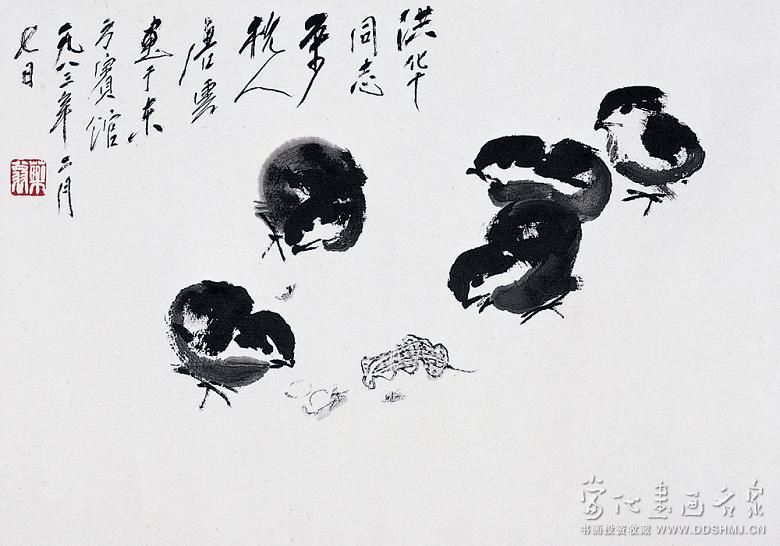 洪华
同志
杭人
唐雲
畫于东
方賓館
一九八三年 月
七日
藥翁
当代書画名家
书画投资收藏 WWW.DDSHMJ.CN